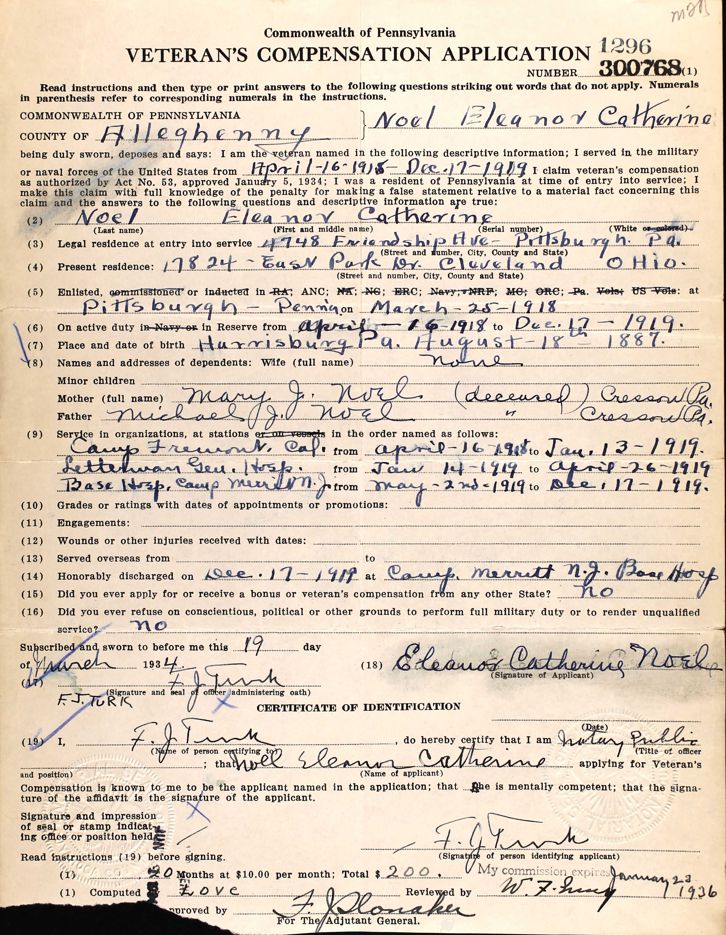 Commonwealth of Pennsylvania
VETERAN'S COMPENSATION APPLICATION 1296
NUMBER 300768 (1)
Read instructions and then type or print answers to the following questions striking out words that do not apply. Numerals
in parenthesis refer to corresponding numerals in the instructions.
COMMONWEALTH OF PENNSYLVANIA
COUNTY OF Alleghenny } Noel Eleanor Catherine
being duly sworn, deposes and says: I am the veteran named in the following descriptive information; I served in the military
or naval forces of the United States from April-16-1918- Dec. 17-1919 I claim veteran's compensation
as authorized by Act No. 53, approved January 5, 1934; I was a resident of Pennsylvania at time of entry into service; I
make this claim with full knowledge of the penalty for making a false statement relative to a material fact concerning this
claim and the answers to the following questions and descriptive information are true:
(2) Noel Eleanor Catherine
(Last name) (First and middle name) (Serial number) (White or colored)
(3) Legal residence at entry into service 4748 Friendship Ave- Pittsburgh. Pa.
(Street and number, City, County and State)
(4) Present residence: 17824 - East Park Dr. Cleveland OHio.
(Street and number, City, County and State)
(5) Enlisted, commissioned or inducted in RA; ANC; NA; NG; ERC; Navy; NRF; MC; ORC; Pa. Vols; US Vols: at
Pittsburgh - Penna on March-25-1918
(6) On active duty in Navy or in Reserve from April - 16-1918 to Dec. 17 - 1919.
(7) Place and date of birth Harrisburg Pa. August-18th 1887.
(8) Names and addresses of dependents: Wife (full name) none
Minor children
Mother (full name) Mary J. Noel (deceased) Cresson Pa.
Father Michael J. Noel " Cresson Pa.
(9) Service in organizations, at stations or on vessels in the order named as follows:
Camp Fremont, Cal. from April-16-1918 to Jan. 13-1919.
Letterman Gen. Hosp. from Jan 14-1919 to April-26-1919
Base Hosp. Camp Merritt N.J. from May-2nd-1919 to Dec. 17-1919.
(10) Grades or ratings with dates of appointments or promotions:
(11) Engagements:
(12) Wounds or other injuries received with dates:
(13) Served overseas from to
(14) Honorably discharged on Dec. 17-1919 at Camp. Merritt N.J. Base Hosp
(15) Did you ever apply for or receive a bonus or veteran's compensation from any other State? No
(16) Did you ever refuse on conscientious, political or other grounds to perform full military duty or to render unqualified
service? No
Subscribed and sworn to before me this 19 day
of March 1934.
(18) Eleanor Catherine Noel
(Signature of Applicant)
(17) F. J. Turk
(Signature and seal of officer administering oath)
F.J. TURK
CERTIFICATE OF IDENTIFICATION
(Date)
(19) I, F. J. Turk, do hereby certify that I am Notary Public
(Name of person certifying to) (Title of officer
; that Noel Eleanor Catherine applying for Veteran's
and position) (Name of applicant)
Compensation is known to me to be the applicant named in the application; that she is mentally competent; that the signa-
ture of the affidavit is the signature of the applicant.
Signature and impression
of seal or stamp indicat-
ing office or position held
F. J. Turk
(Signature of person identifying applicant)
Read instructions (19) before signing.
My commission expires January 23 1936
(1) 20 Months at $10.00 per month; Total $ 200.
(1) Computed Love Reviewed by
Approved by
For The Adjutant General.